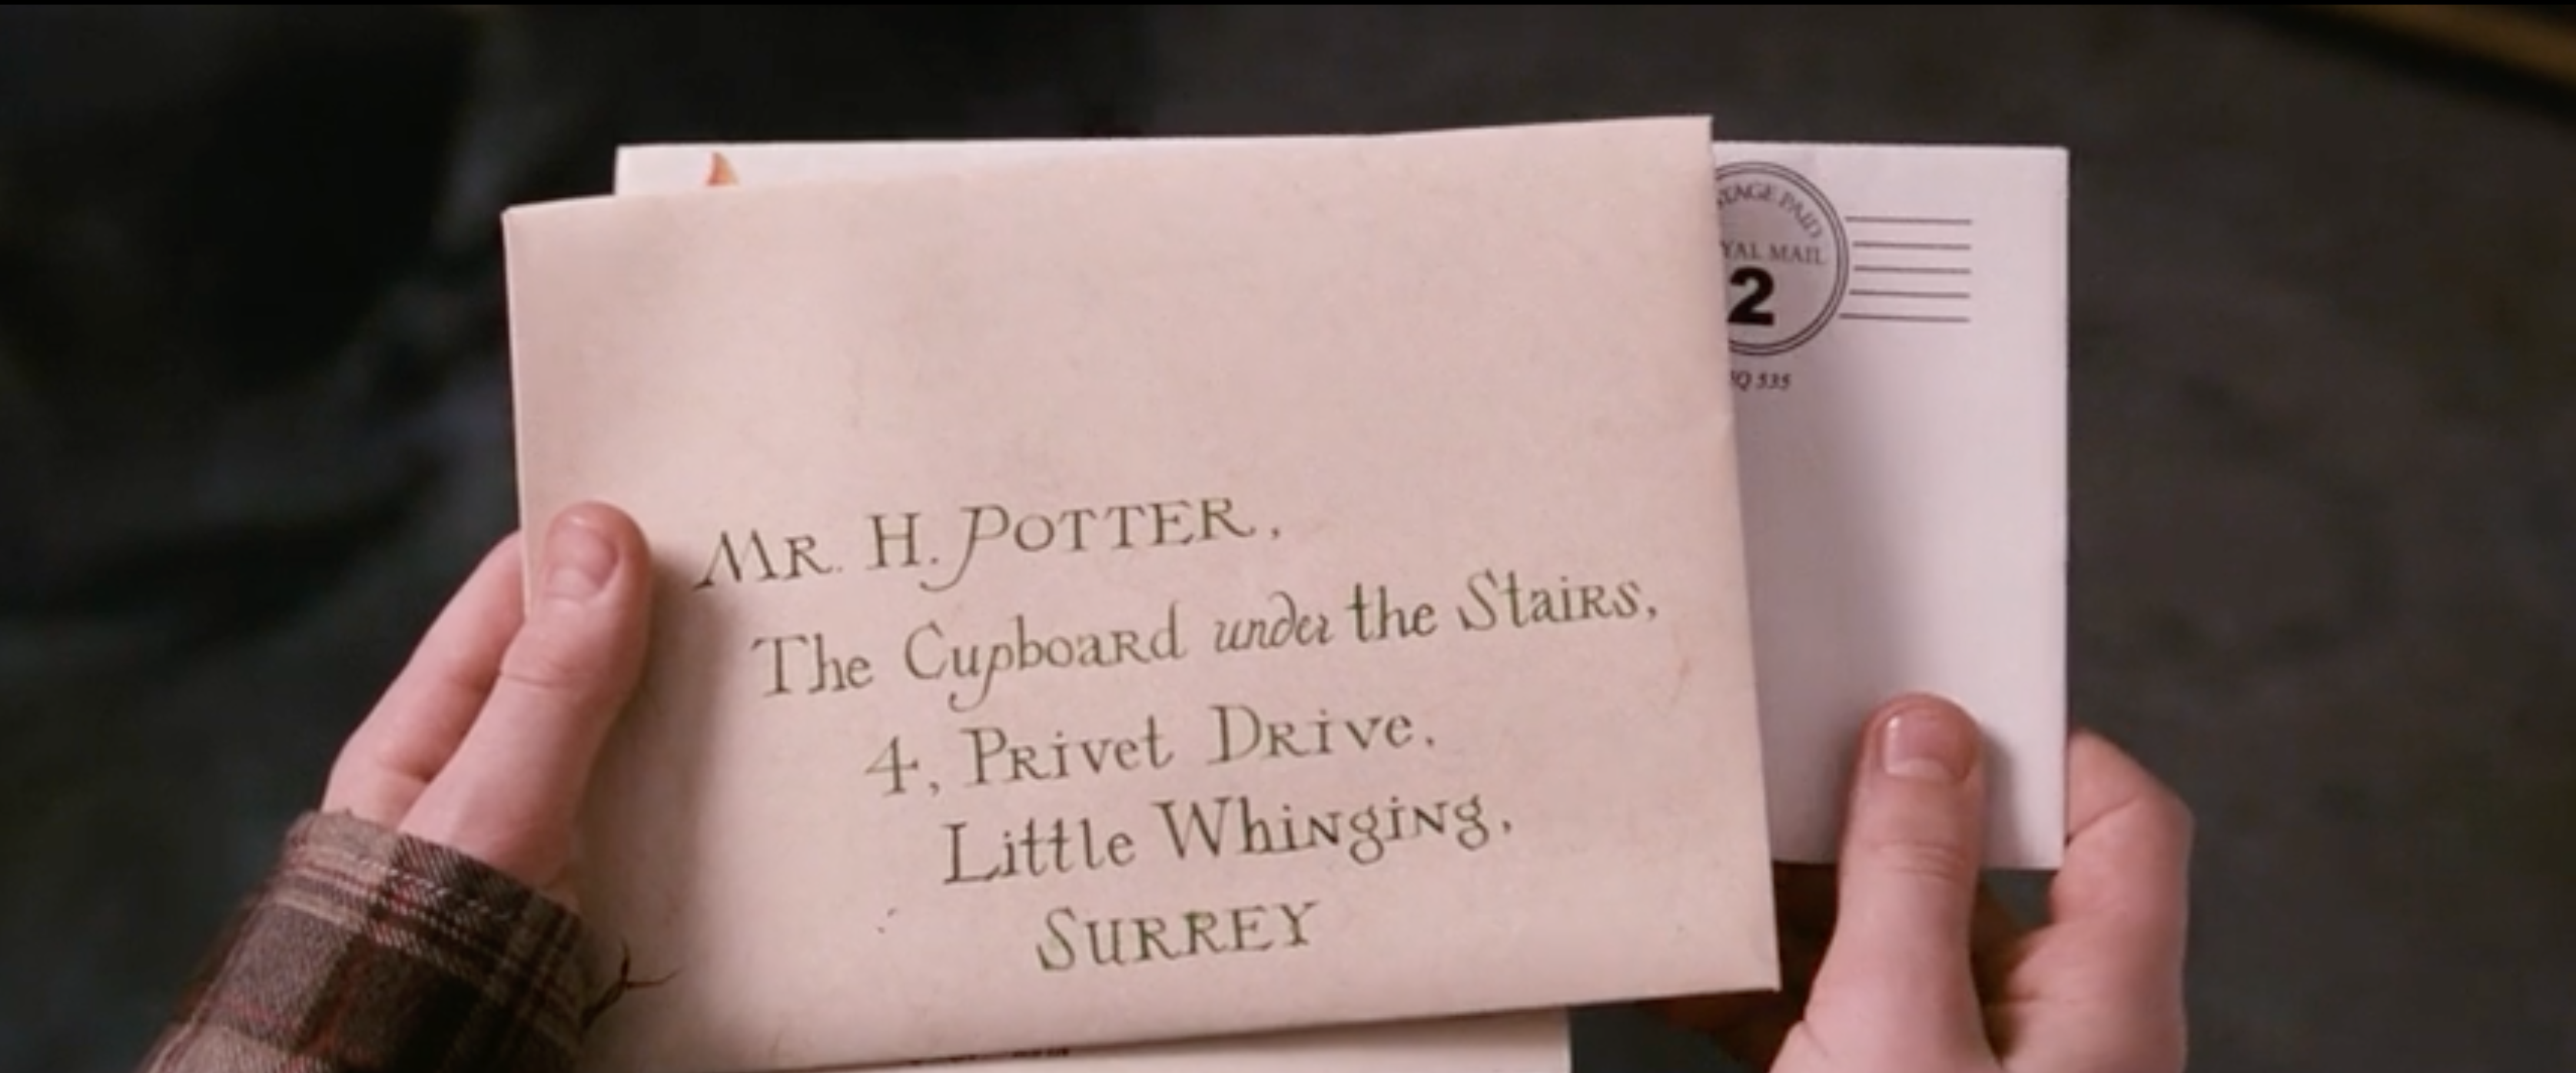 MR. H. POTTER,
The Cupboard under the Stairs,
4, Privet Drive,
Little Whinging,
SURREY
PAID
MAIL
2
535